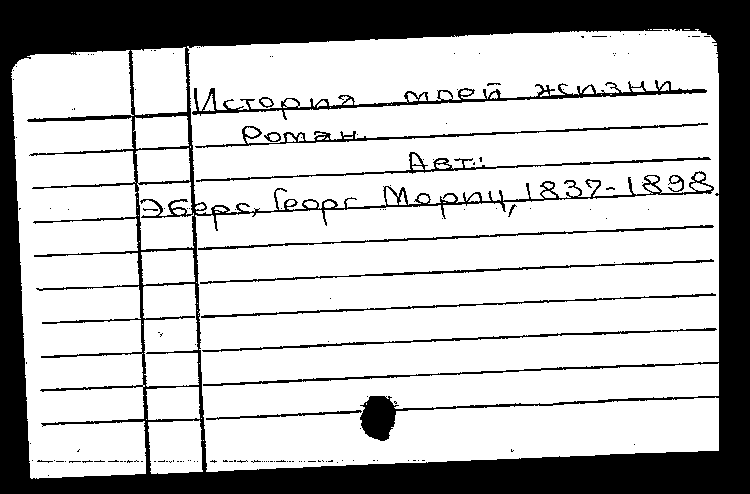 История моей жизни.
Роман.
Авт.:
Эберс, Георг Мориц, 1837-1898.